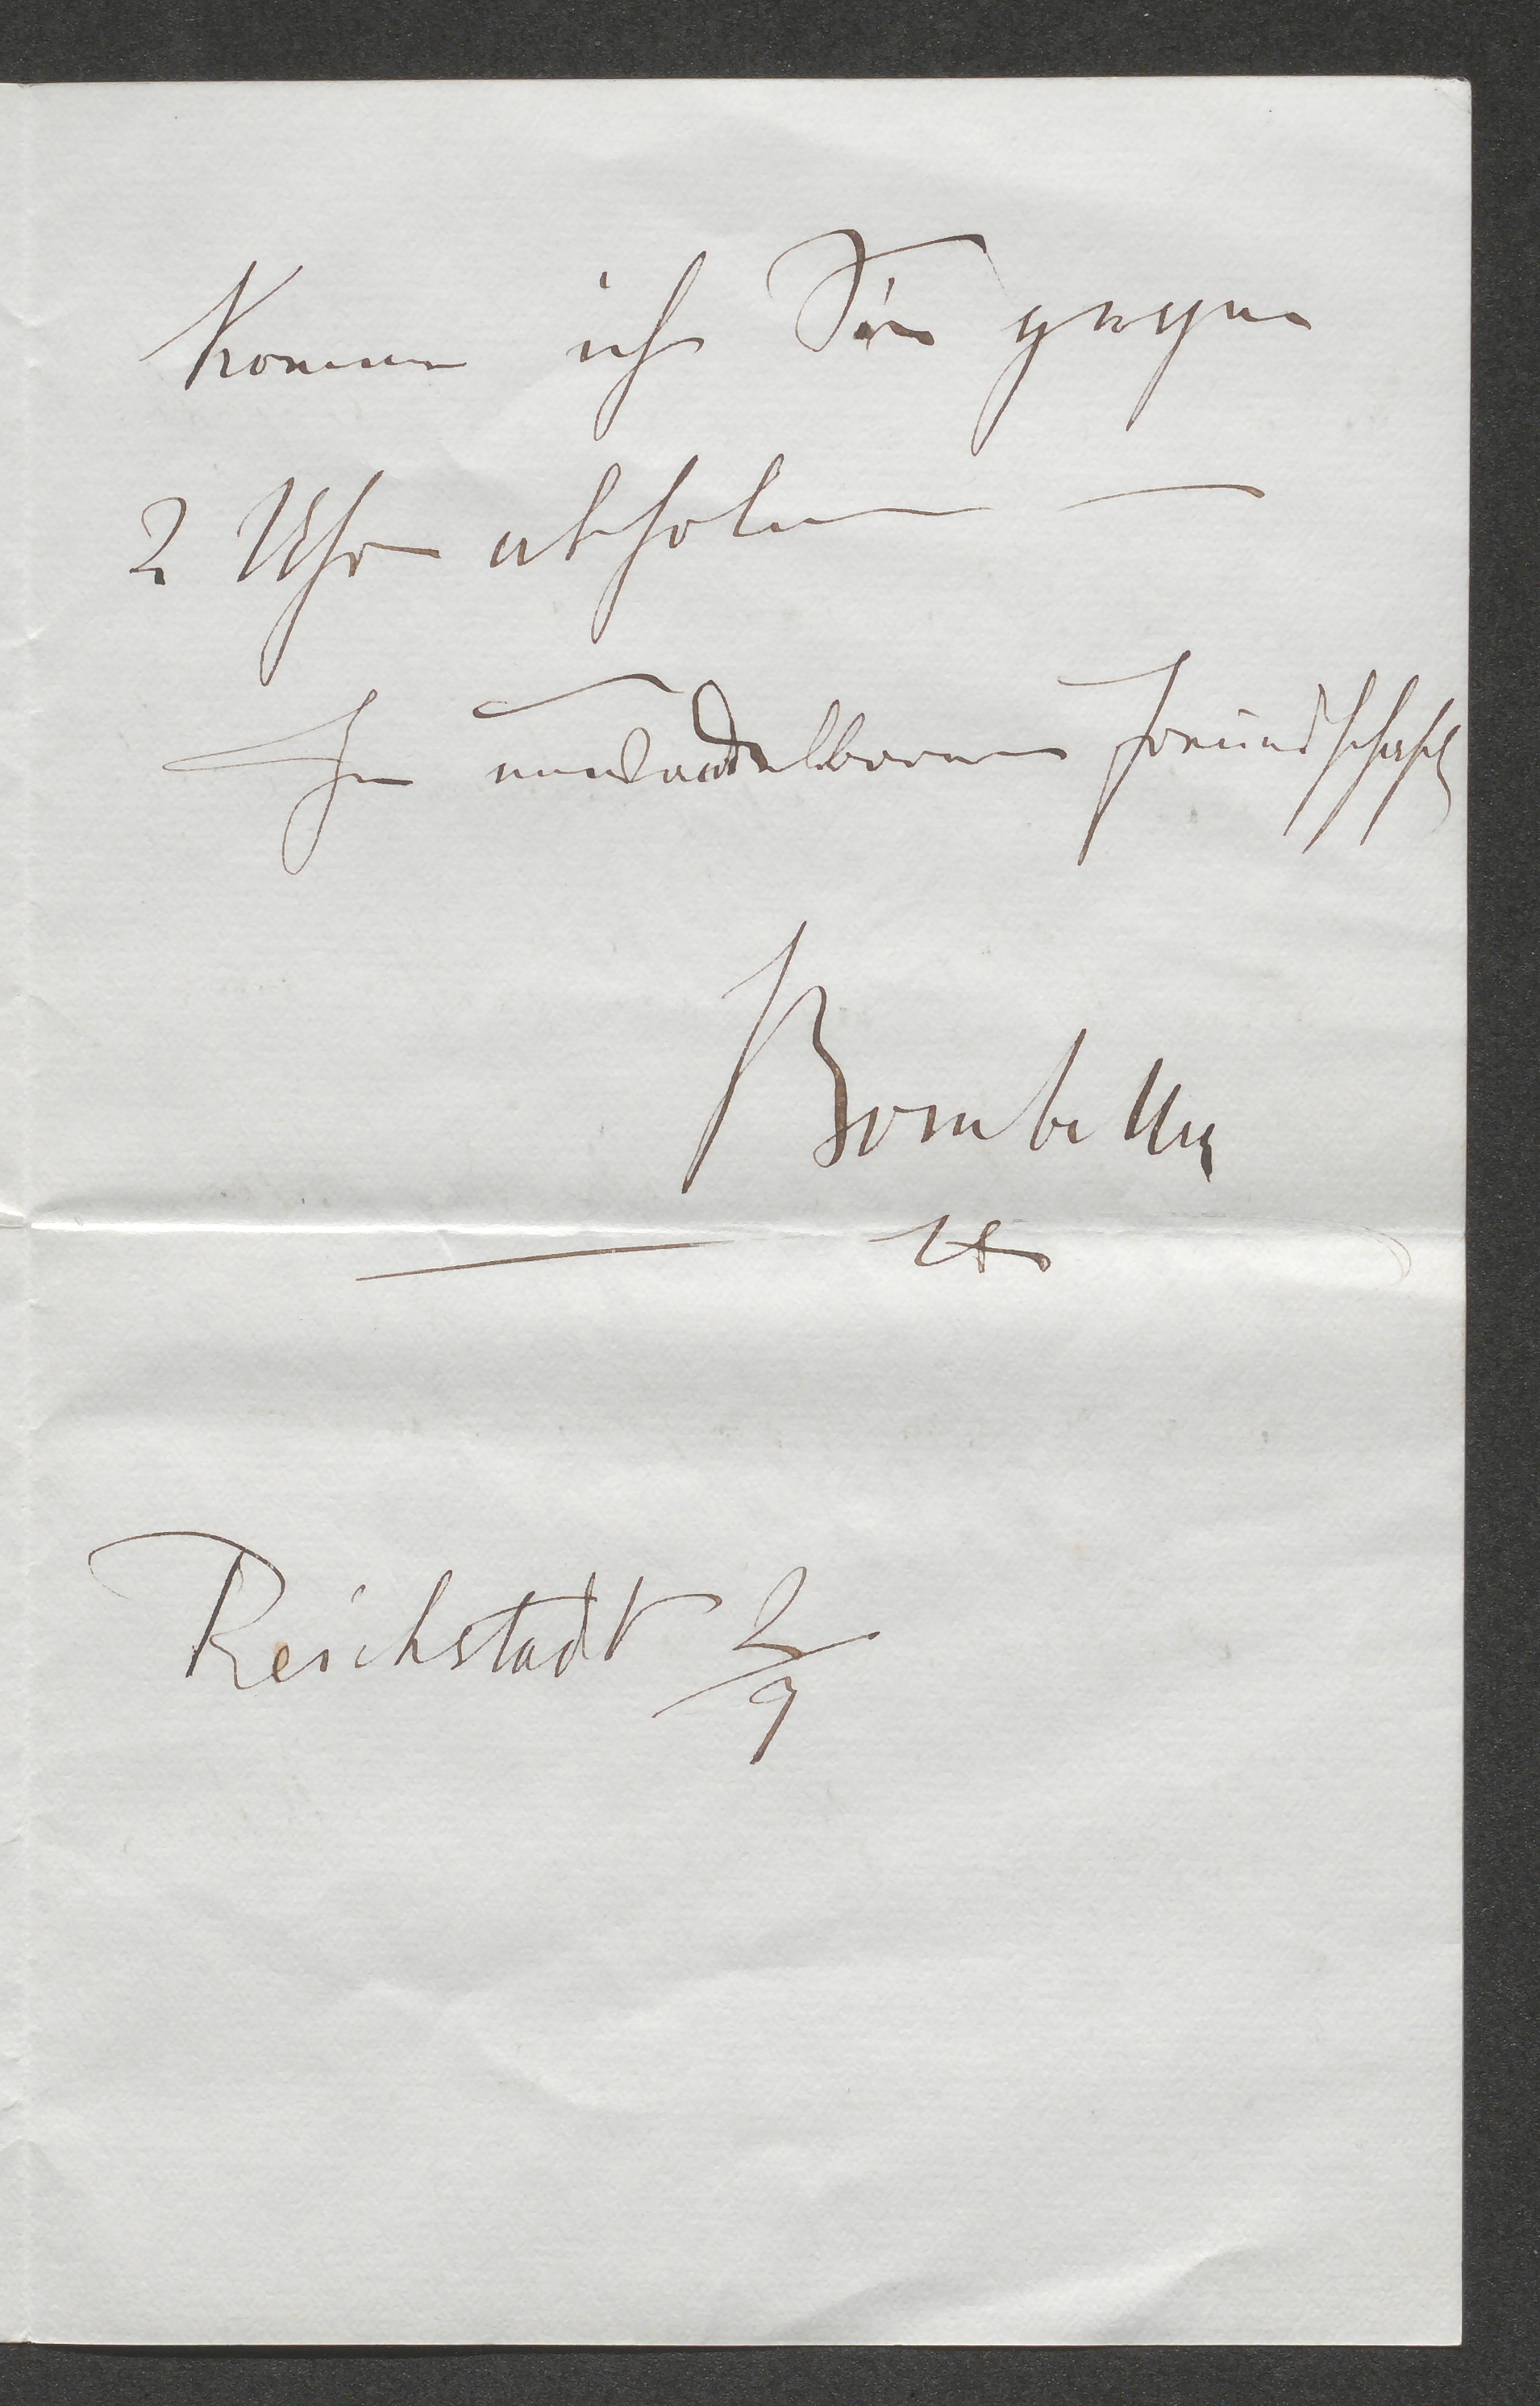 komme ich Sie gegen
2 Uhr abholen —
In unwandelbarer Freundschaft
Bombelles
Reichstadt 2/9